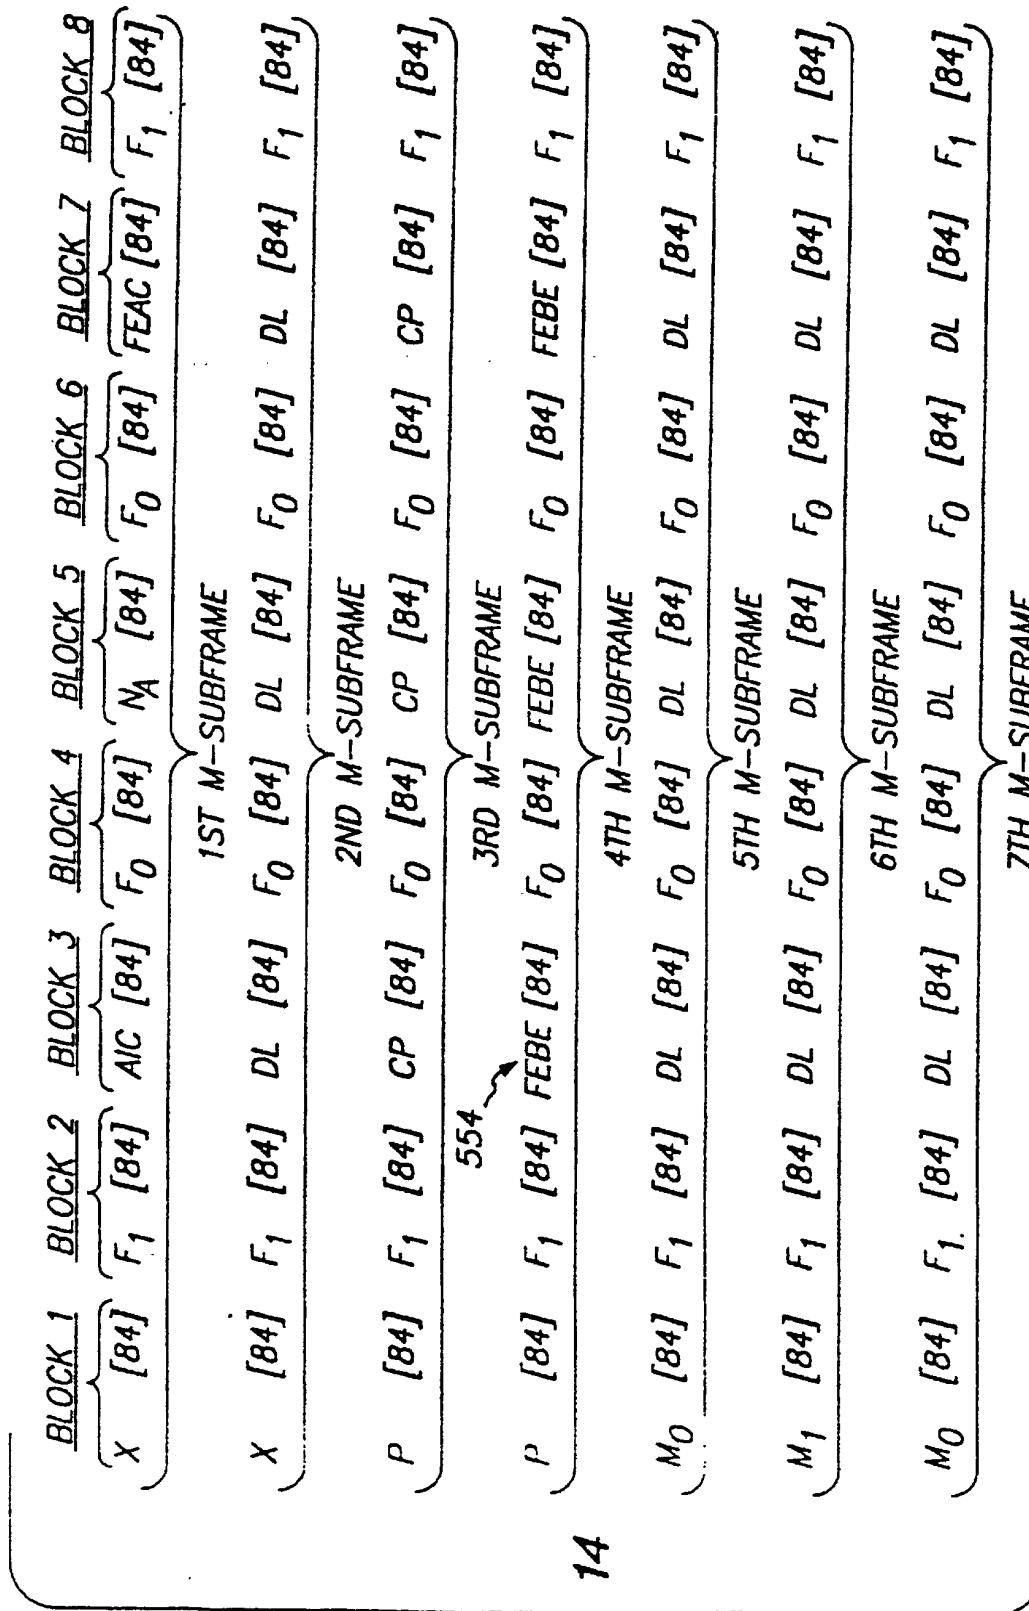 BLOCK 1 BLOCK 2 BLOCK 3 BLOCK 4 BLOCK 5 BLOCK 6 BLOCK 7 BLOCK 8
X [84] F1 [84] AIC [84] F0 [84] NA [84] F0 [84] FEAC [84] F1 [84]
1ST M-SUBFRAME
X [84] F1 [84] DL [84] F0 [84] DL [84] F0 [84] DL [84] F1 [84]
2ND M-SUBFRAME
P [84] F1 [84] CP [84] F0 [84] CP [84] F0 [84] CP [84] F1 [84]
554
3RD M-SUBFRAME
P [84] F1 [84] FEBE [84] F0 [84] FEBE [84] F0 [84] FEBE [84] F1 [84]
14
4TH M-SUBFRAME
M0 [84] F1 [84] DL [84] F0 [84] DL [84] F0 [84] DL [84] F1 [84]
5TH M-SUBFRAME
M1 [84] F1 [84] DL [84] F0 [84] DL [84] F0 [84] DL [84] F1 [84]
6TH M-SUBFRAME
M0 [84] F1. [84] DL [84] F0 [84] DL [84] F0 [84] DL [84] F1 [84]
7TH M-SUBFRAME